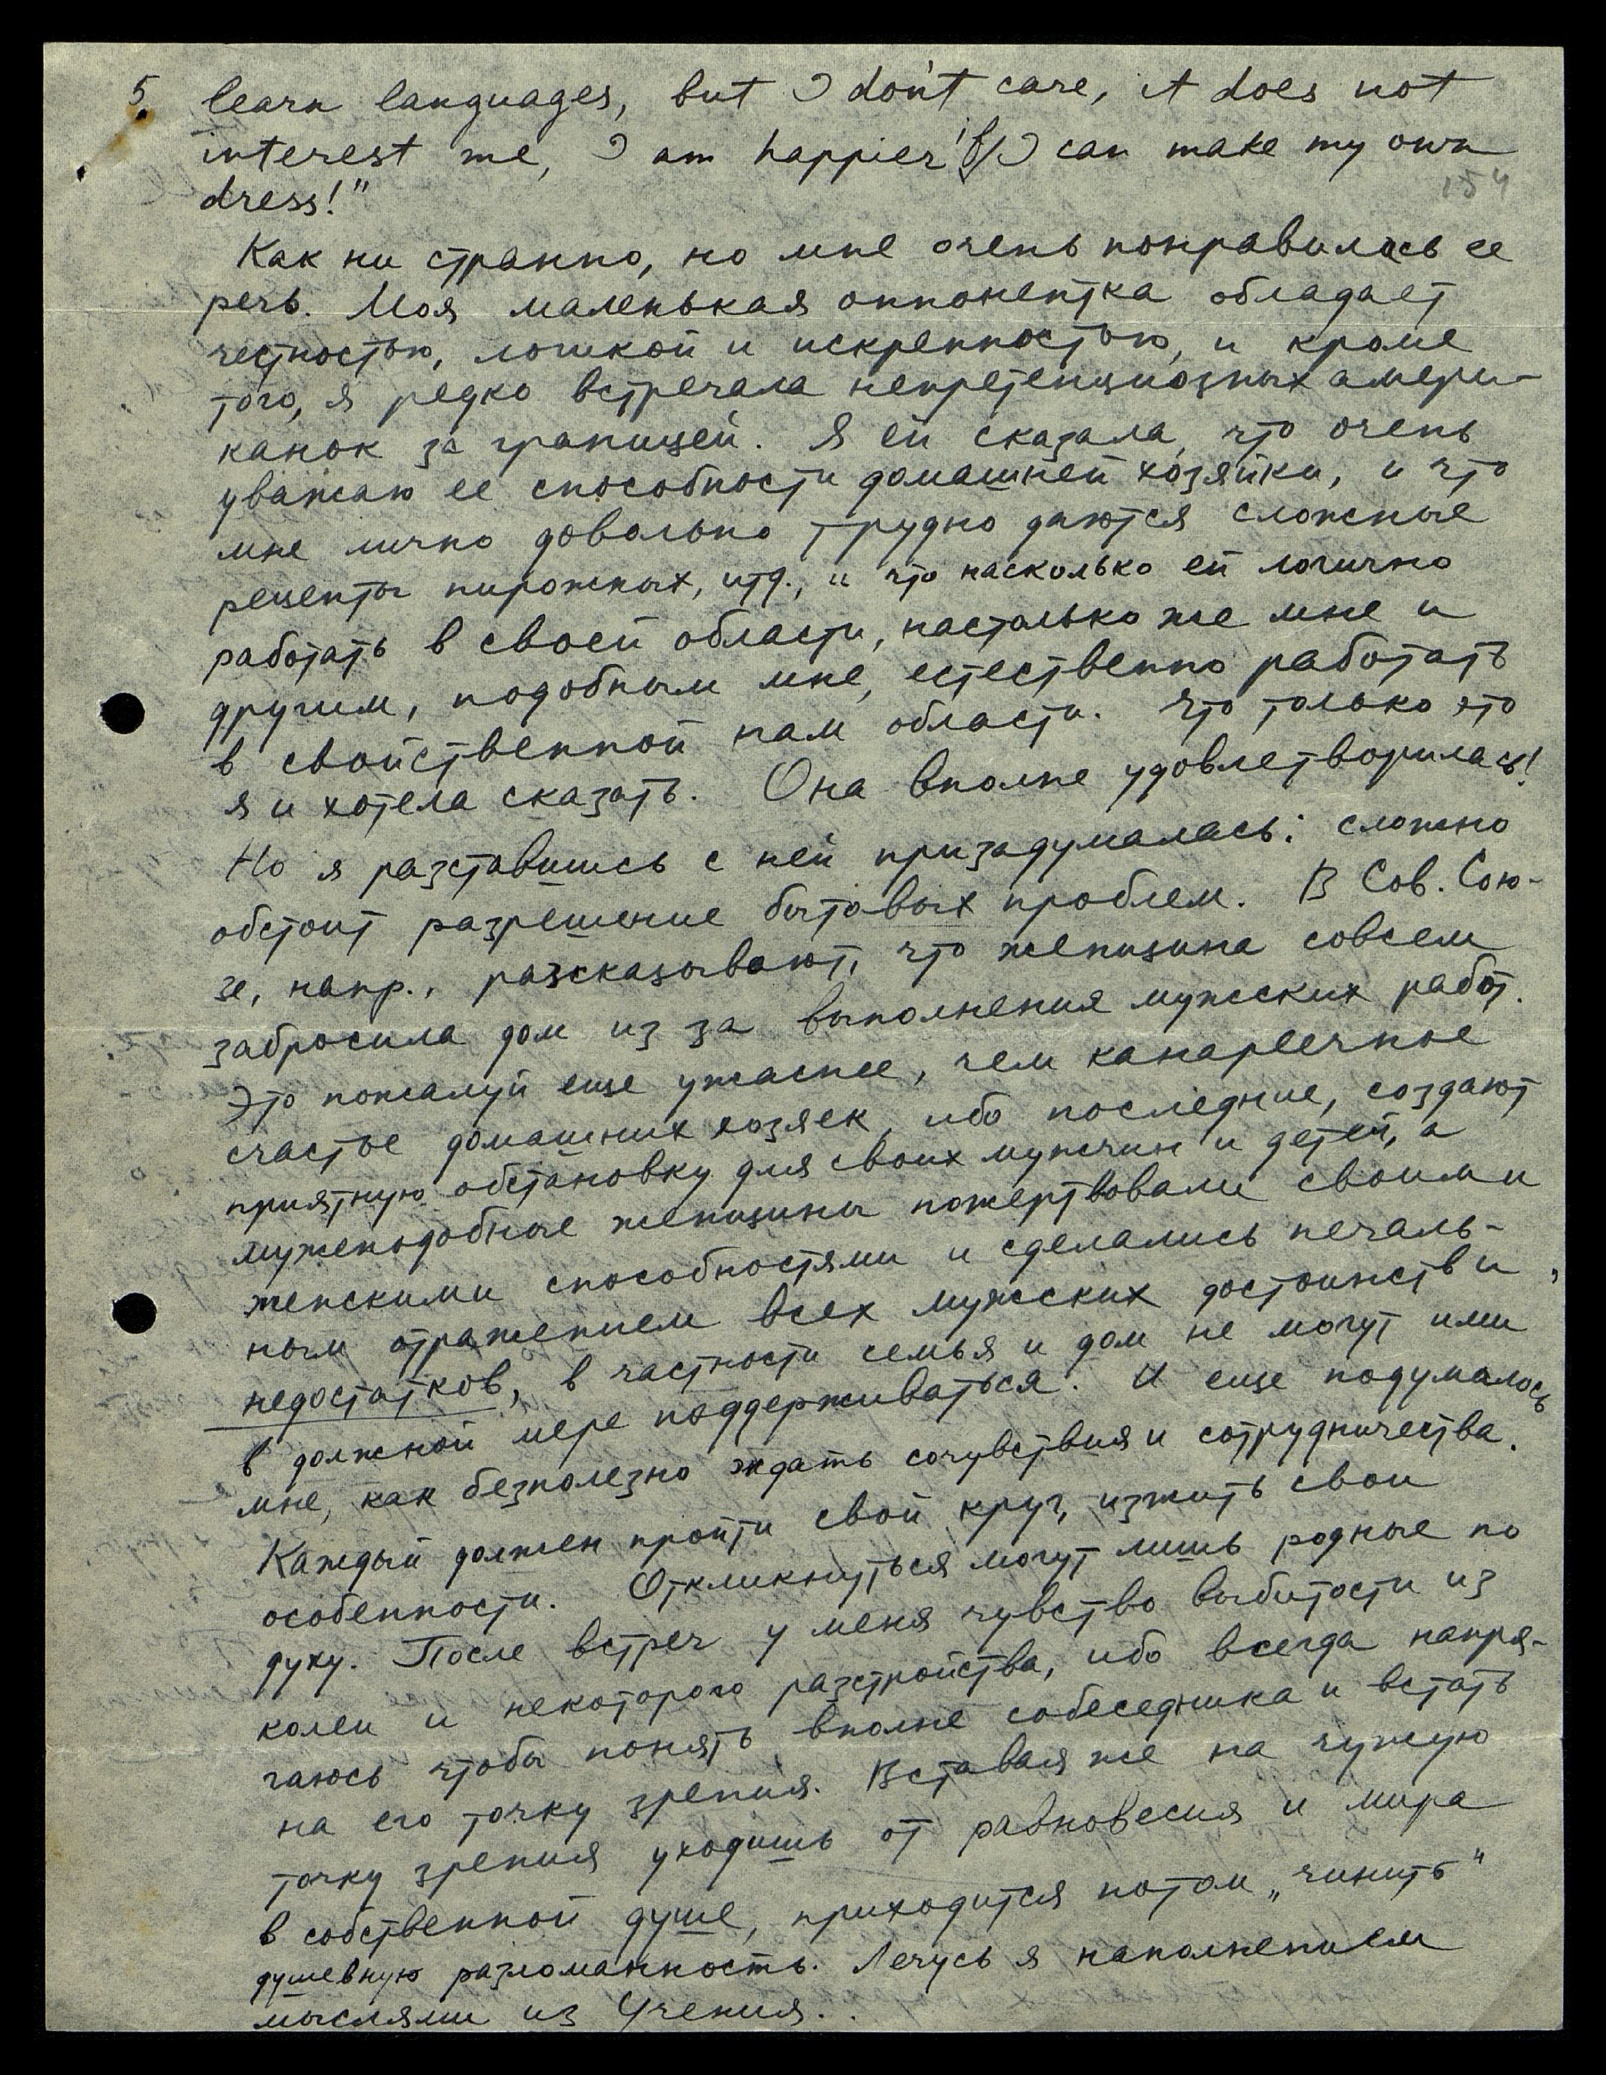 5. learn languages, but I don't care, it does not
interest me, I am happier if I can make my own
dress!"
154
Как ни странно, но мне очень понравилась ее
речь. Моя маленькая оппонентка обладает
честностью, логикой и искренностью, и кроме
того, я редко встречала непретенциозных амери-
канок за границей. Я ей сказала, что очень
уважаю ее способности домашней хозяйки, и что
мне лично довольно трудно даются сложные
рецепты пирожных, итд., и что насколько ей логично
работать в своей области, настолько же мне и
другим, подобным мне, естественно работать
в свойственной нам области. Что только это
я и хотела сказать. Она вполне удовлетворилась!
Но я разставшись с ней призадумалась: сложно
обстоит разрешение бытовых проблем. В Сов. Сою-
зе, напр., разсказывают, что женщина совсем
забросила дом из за выполнения мужских работ.
Это пожалуй еще ужаснее, чем канареечное
счастье домашних хозяек, ибо последние, создают
приятную обстановку для своих мужчин и детей, а
мужеподобные женщины пожертвовали своими
женскими способностями и сделались печаль-
ным отражением всех мужских достоинств и
недостатков, в частности семья и дом не могут ими
в должной мере поддерживаться. И еще подумалось
мне, как безполезно ждать сочувствия и сотрудничества.
Каждый должен пройти свой круг, изжить свои
особенности. Откликнуться могут лишь родные по
духу. После встреч у меня чувство выбитости из
колеи и некоторого разстройства, ибо всегда напря-
гаюсь чтобы понять вполне собеседника и встать
на его точку зрения. Вставая же на чужую
точку зрения уходишь от равновесия и мира
в собственной душе, приходится потом „чинить"
душевную разломанность. Лечусь я наполнением
мыслями из Учения..